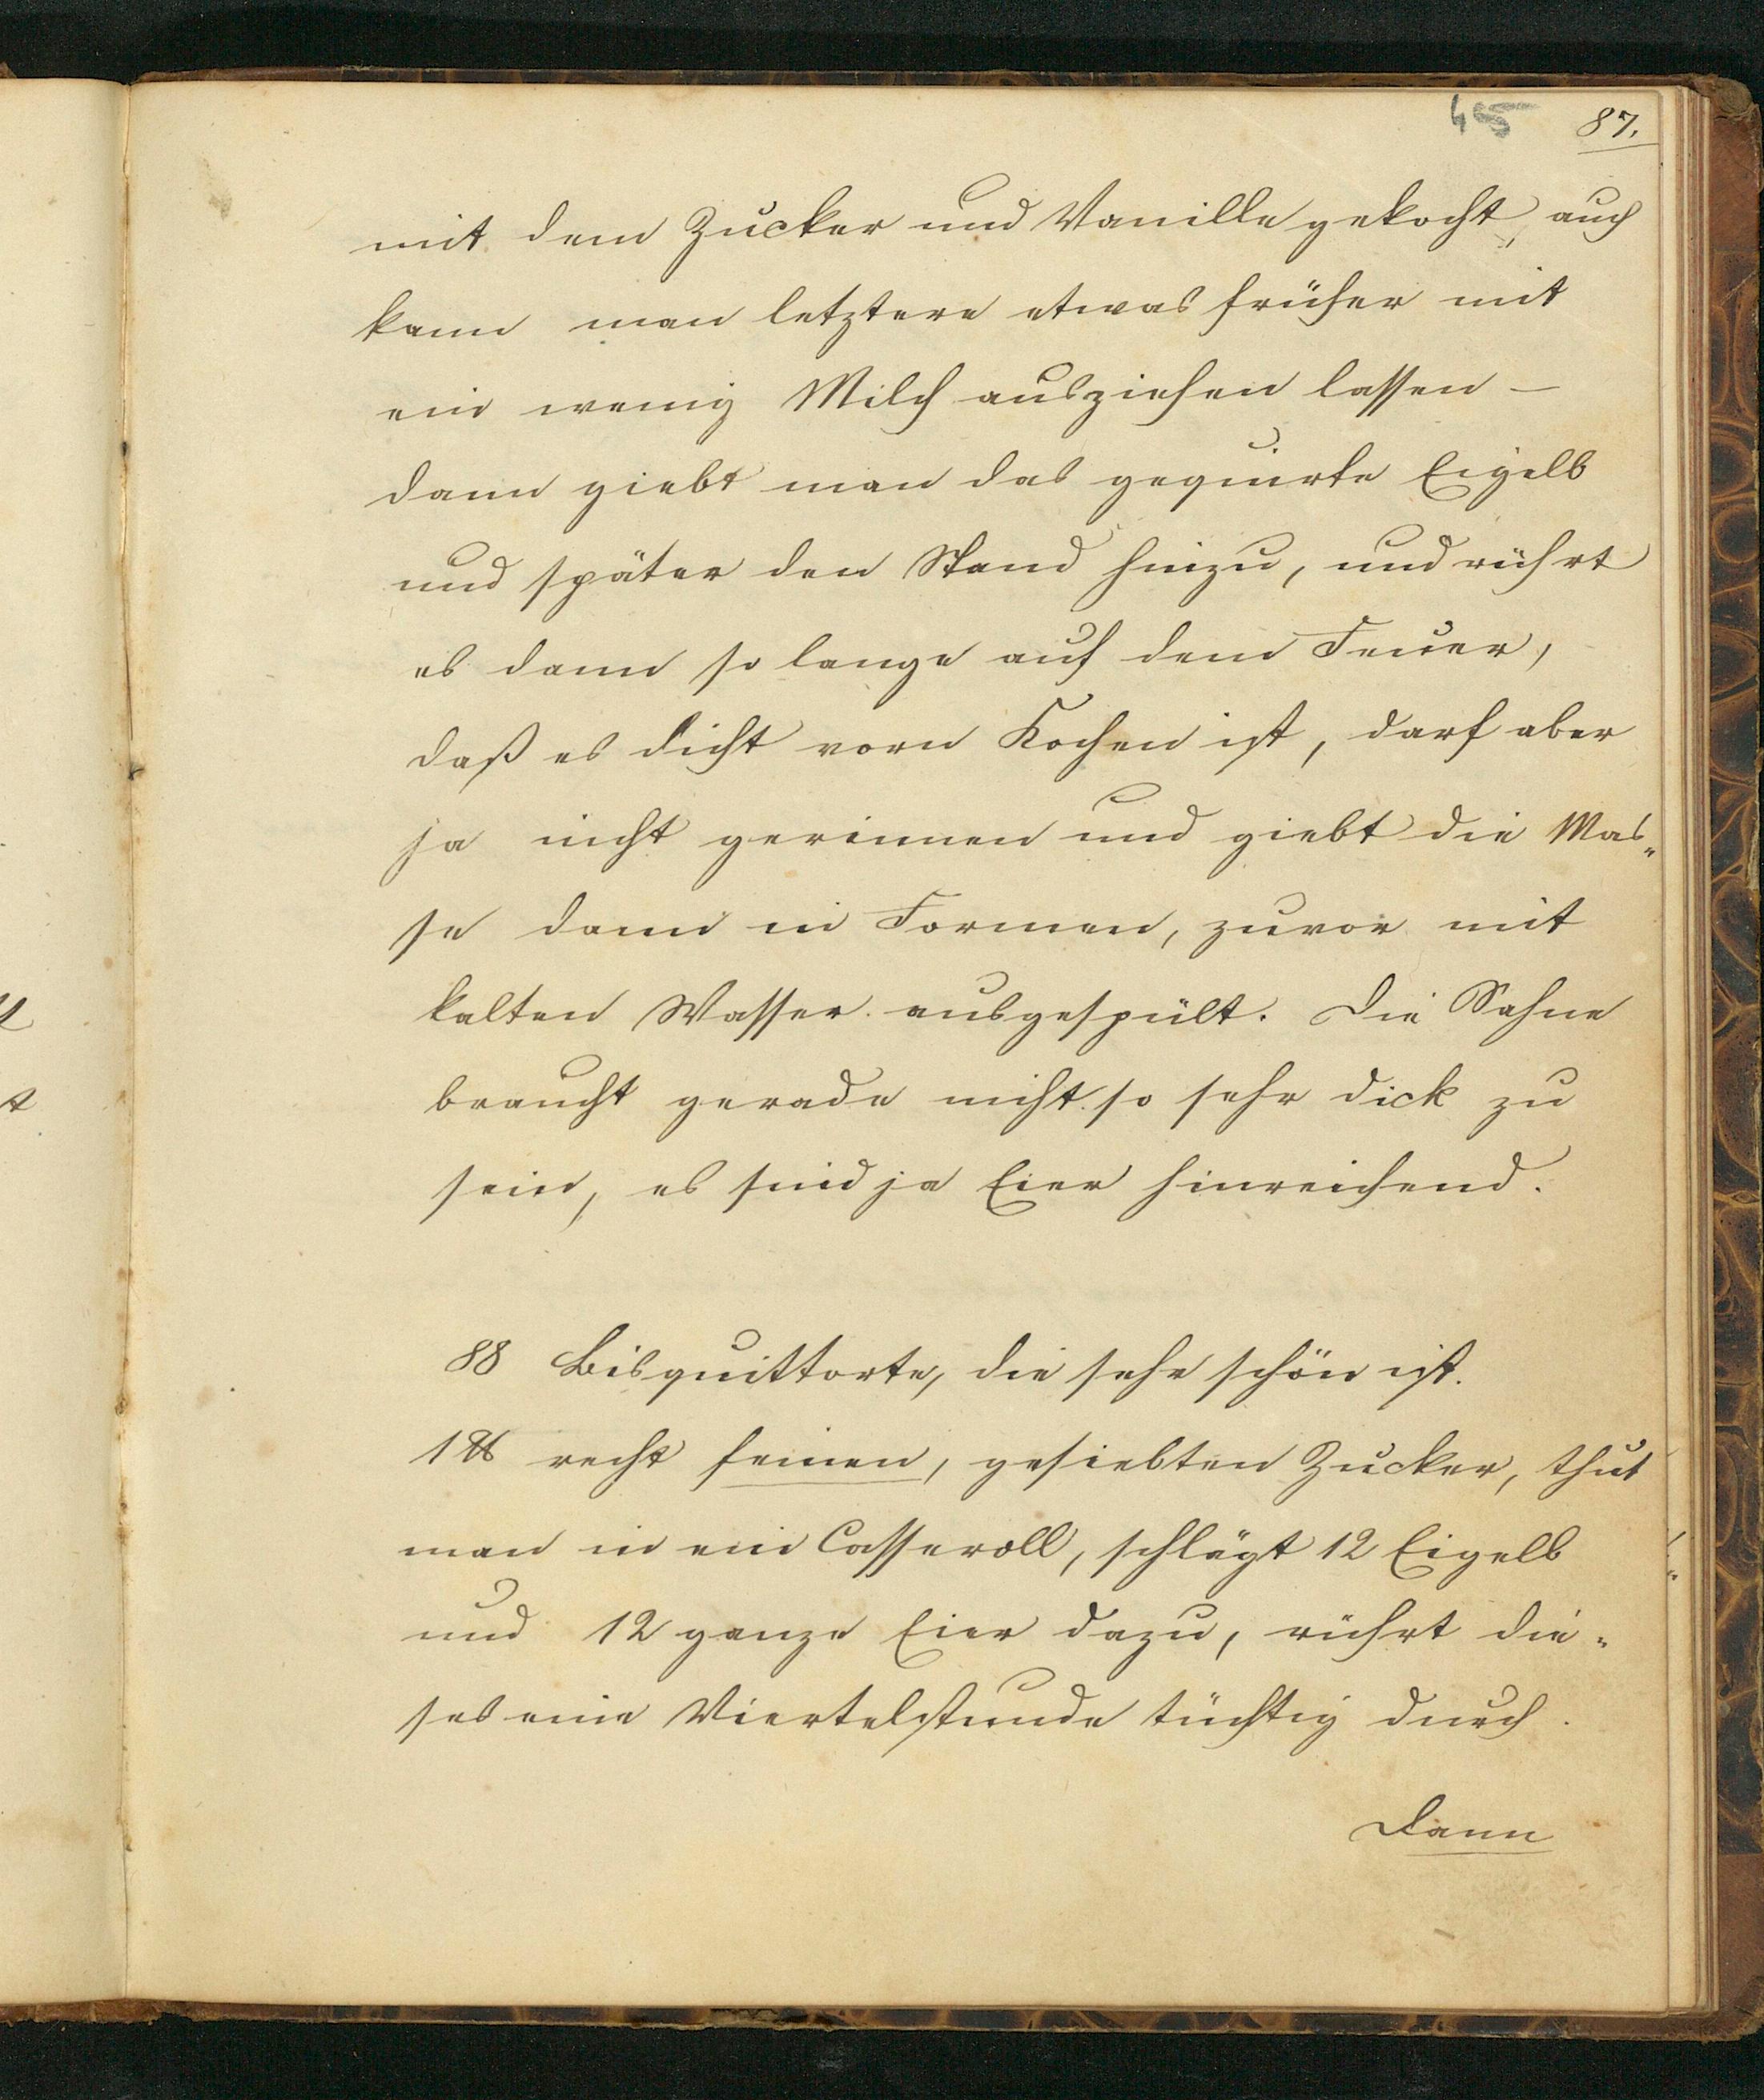 45 87.
mit dem Zucker und Vanille gekocht, auch
kann man letztere etwas früher mit
ein wenig Milch ausziehen lassen –
dann giebt man das gequirte Eigelb
und später den Stand hinzu, und rührt
es dann so lange auf dem Feuer,
daß es dicht vorn Kochen ist, darf aber
ja nicht gerinnen und giebt die Mas„
se dann in Formen, zuvor mit
kalten Wasser ausgespült. Die Sahne
braucht gerade nicht so sehr dick zu
sein, es sind ja Eier hinreichend.
88 Bisquittorte, die sehr schön ist.
1 ℔ recht feinen, gesiebten Zucker, thut
man in ein Casseroll, schlägt 12 Eigelb
und 12 ganze Eier dazu, rührt die„
ses eine Viertelstunde tüchtig durch.
Dann